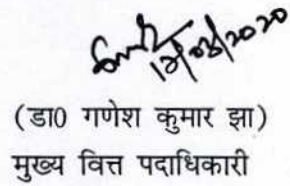 12/03/2020
(डा0 गणेश कुमार झा)
मुख्य वित्त पदाधिकारी